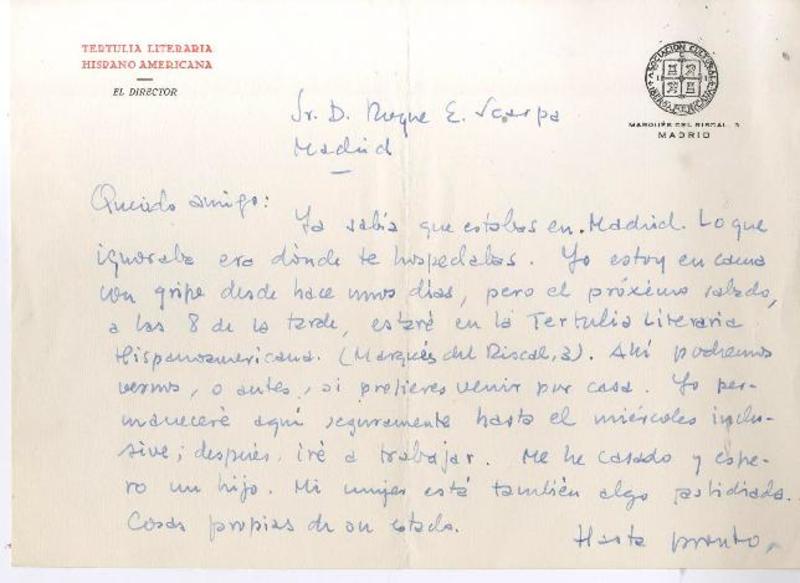 TERTULIA LITERARIA
HISPANO AMERICANA
EL DIRECTOR
ASOCIACION CULTURAL IBERO-AMERICANA
MARQUÉS DEL RISCAL, 3
MADRID
Sr. D. Roque E. Scarpa
Madrid
Querido amigo:
Ya sabía que estabas en Madrid. Lo que
ignoraba era dónde te hospedabas. Yo estoy en cama
con gripe desde hace unos días, pero el próximo sábado,
a las 8 de la tarde, estaré en la Tertulia Literaria
Hispanoamericana. (Marqués del Riscal, 3). Ahí podremos
vernos, o antes, si prefieres venir por casa. Yo per-
maneceré aquí seguramente hasta el miércoles inclu-
sive; después, iré a trabajar. Me he casado y espe-
ro un hijo. Mi mujer está también algo fastidiada.
Cosas propias de su estado.
Hasta pronto,